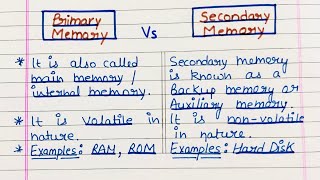 Primary Memory Vs Secondary Memory
* It is also called
main memory /
internal memory.
* It is volatile in
nature.
* Examples: RAM, ROM
Secondary memory
is known as a
Backup memory or
Auxiliary memory.
It is non-volatile
in nature.
Examples: Hard Disk